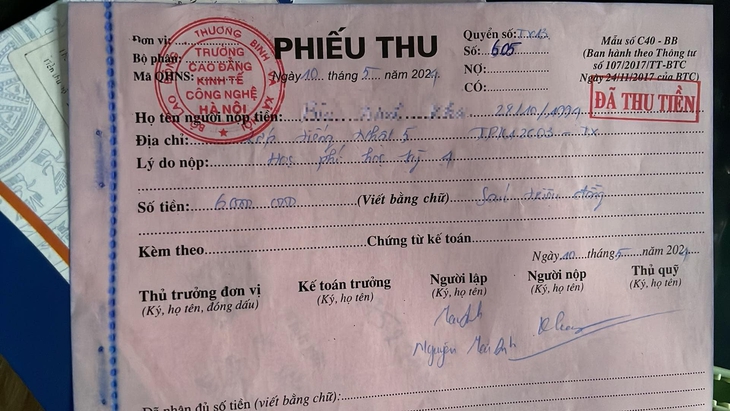 Đơn vị:
PHIẾU THU
Quyển số:
Mẫu số C40 - BB
Bộ phận:
Số: 605
(Ban hành theo Thông tư
Mã QHNS:
Ngày 10 tháng 5 năm 2024
NỢ:
số 107/2017/TT-BTC
CÓ:
Ngày 24/11/2017 của BTC)
BỘ LAO ĐỘNG THƯƠNG BINH VÀ XÃ HỘI
TRƯỜNG
CAO ĐẲNG
KINH TẾ
CÔNG NGHỆ
HÀ NỘI
ĐÃ THU TIỀN
Họ tên người nộp tiền:
Địa chỉ: Tiếng Nhật 5
Lý do nộp: Học phí học kỳ
Số tiền: 6.000.000 (Viết bằng chữ) Sáu triệu đồng
Kèm theo Chứng từ kế toán
Ngày 10 tháng 5 năm 2024
Thủ trưởng đơn vị Kế toán trưởng Người lập Người nộp Thủ quỹ
(Ký, họ tên, đóng dấu) (Ký, họ tên) (Ký, họ tên) (Ký, họ tên) (Ký, họ tên)
Nguyễn
Đã nhận đủ số tiền (viết bằng chữ):